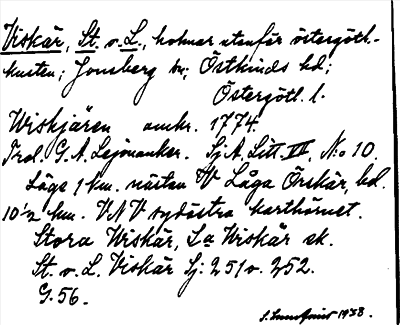 Viskär, St. o. L., holmar utanför östergötl.-
kusten; Jonsberg sn; Östkinds hd;
Östergötl. l.
Wiskjären omkr. 1774.
Trol. G. A. Lejonanker. Sj. A. Litt. VII, N:o 10.
Läge 1 km. nästan W Låga Örskär, bd.
10 1/2 km. VNV sydöstra karthörnet.
Stora Wiskär, L:a Wiskär ek.
St. o. L. Viskär Sj: 251 o. 252.
G. 56.
1938.